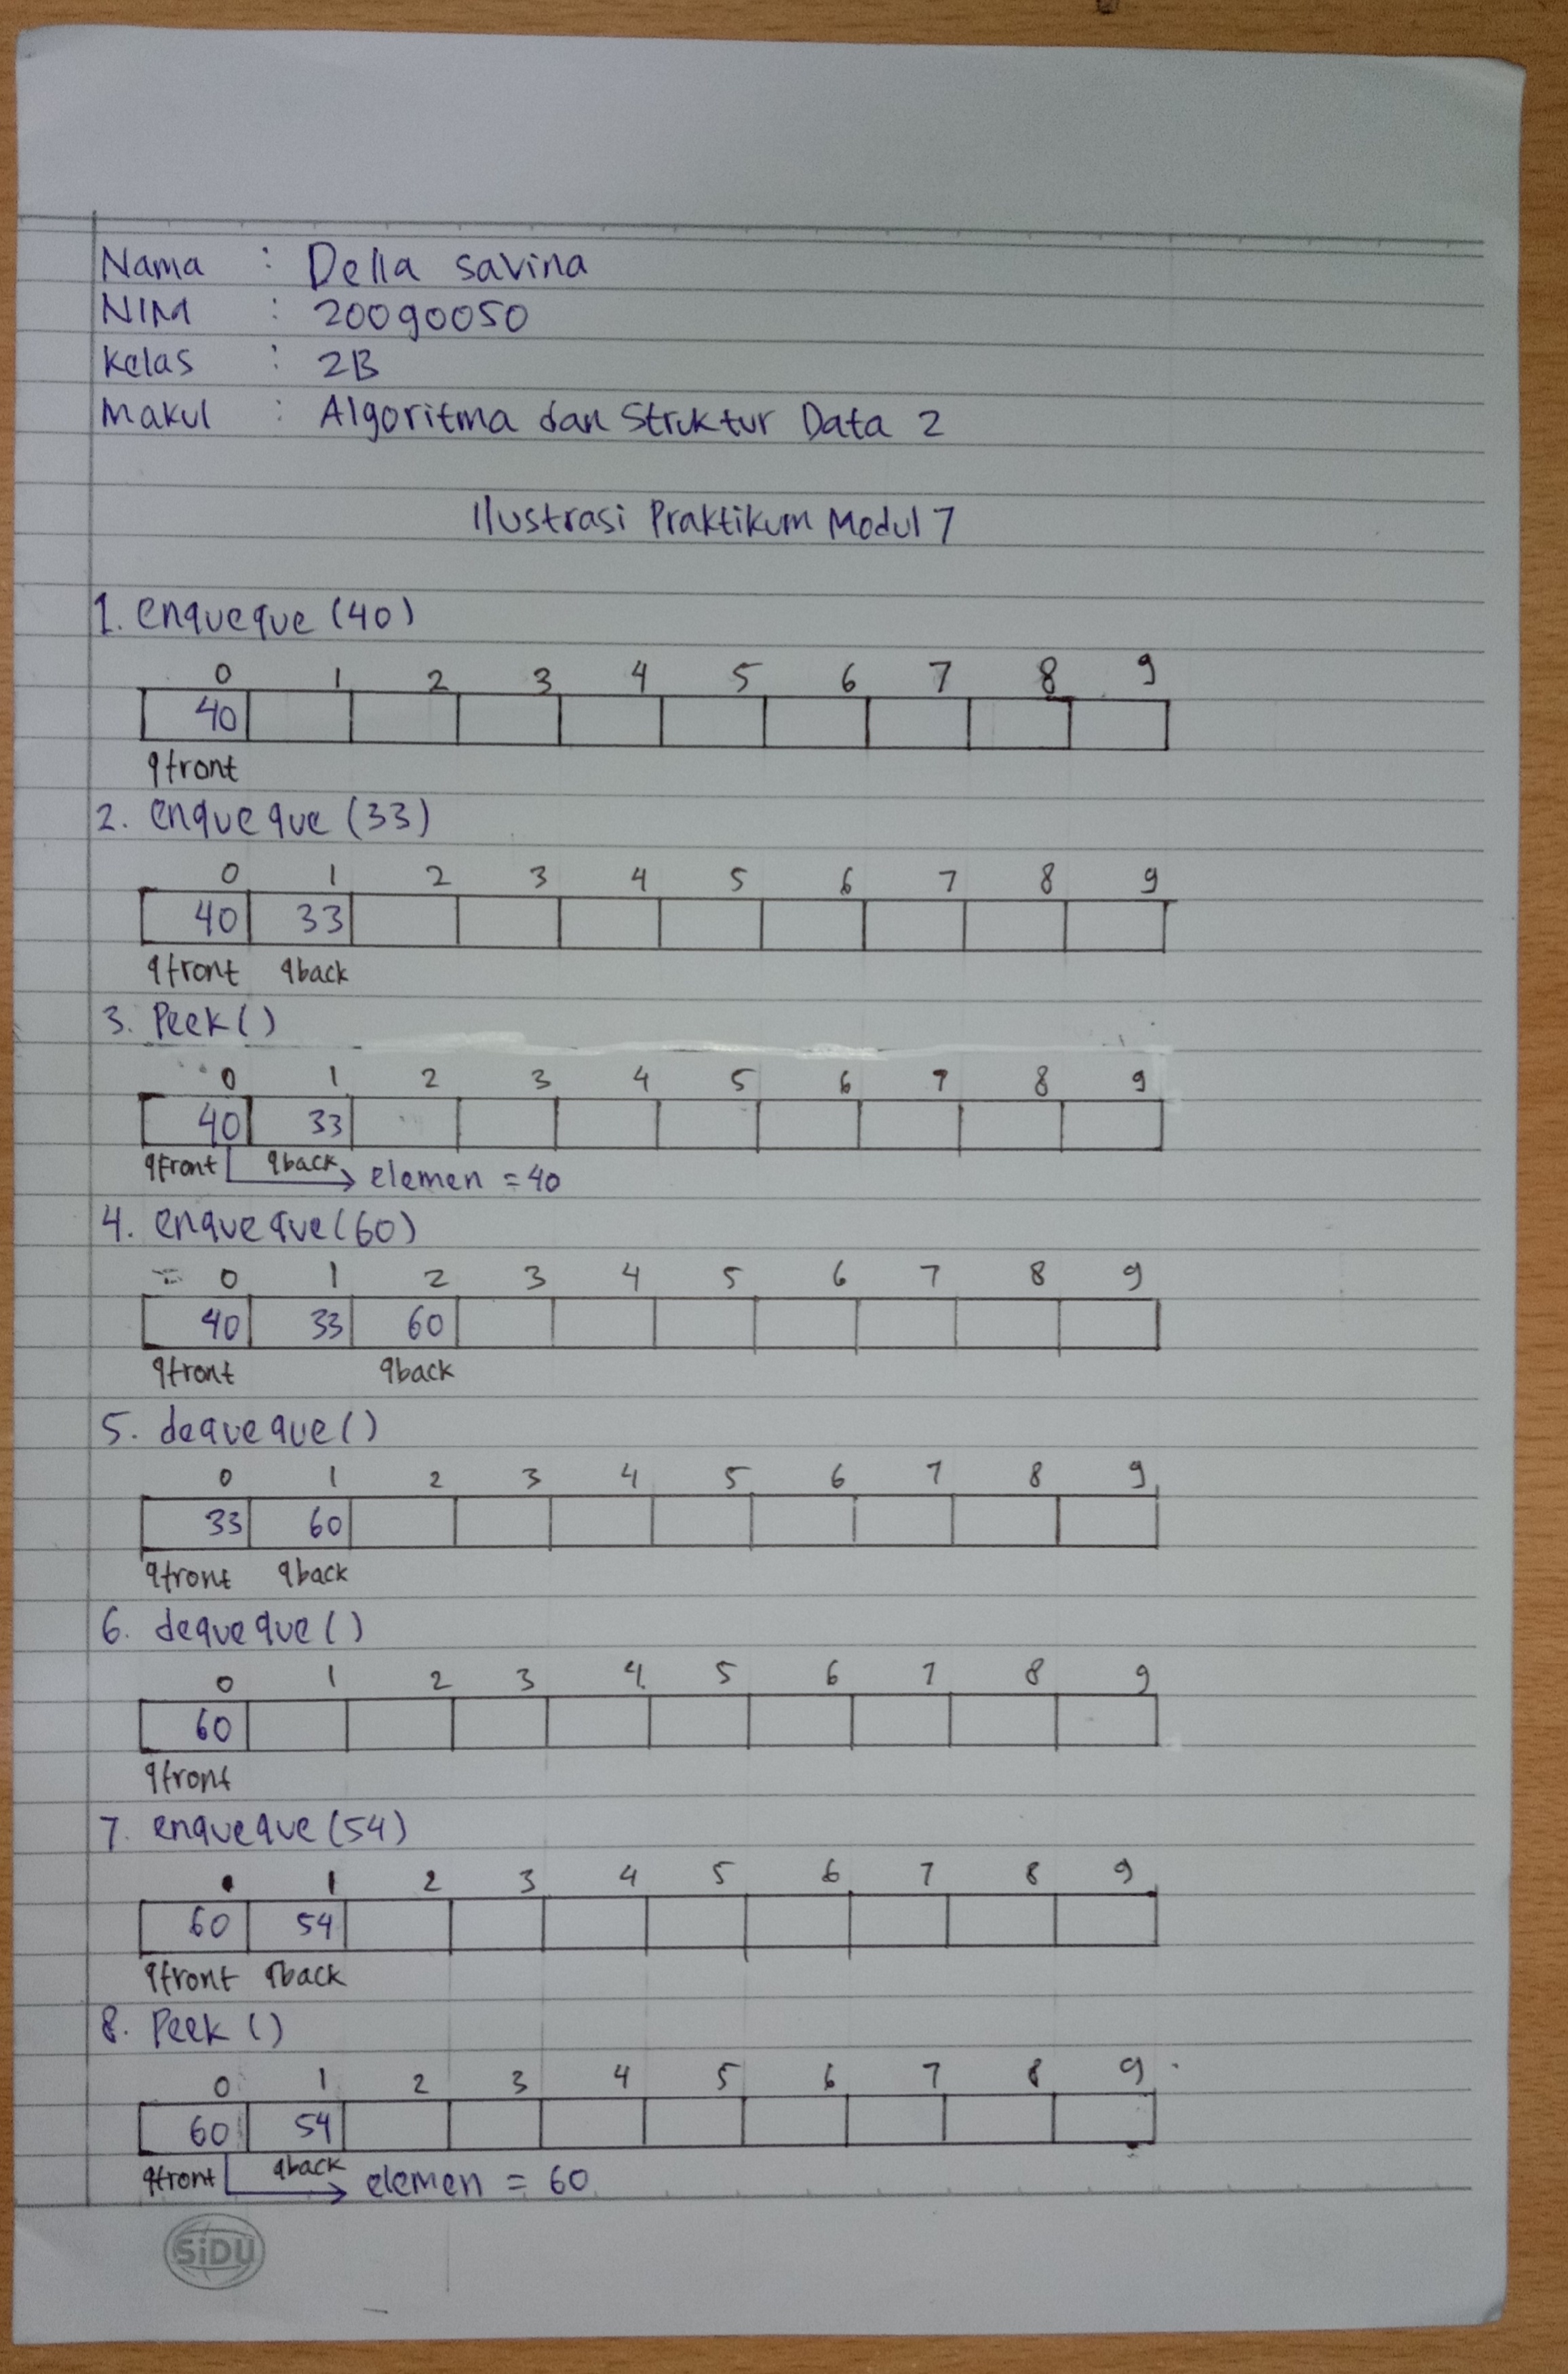 Nama : Della savina
NIM : 20090050
Kelas : 2B
Makul : Algoritma dan Struktur Data 2
Ilustrasi Praktikum Modul 7
1. enqueque (40)
0 1 2 3 4 5 6 7 8 9
40
qfront
2. enqueque (33)
0 1 2 3 4 5 6 7 8 9
40 33
qfront qback
3. Peek()
0 1 2 3 4 5 6 7 8 9
40 33
qfront qback → elemen = 40
4. enqueque(60)
0 1 2 3 4 5 6 7 8 9
40 33 60
qfront qback
5. dequeque()
0 1 2 3 4 5 6 7 8 9
33 60
qfront qback
6. dequeque()
0 1 2 3 4 5 6 7 8 9
60
qfront
7. enqueque (54)
0 1 2 3 4 5 6 7 8 9
60 54
qfront qback
8. Peek ()
0 1 2 3 4 5 6 7 8 9
60 54
qfront qback → elemen = 60
SiDU